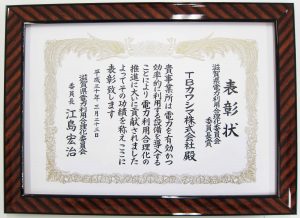 表彰状
滋賀県電力利用合理化委員会
委員長賞
TBカワシマ株式会社 殿
貴事業所は電力を有効かつ
効率的に利用する設備を導入する
ことにより電力利用合理化の
推進に大いに貢献されました
よってその功績を称えここに
表彰致します
平成三十年三月二十三日
滋賀県電力利用合理化委員会
委員長 江島宏治